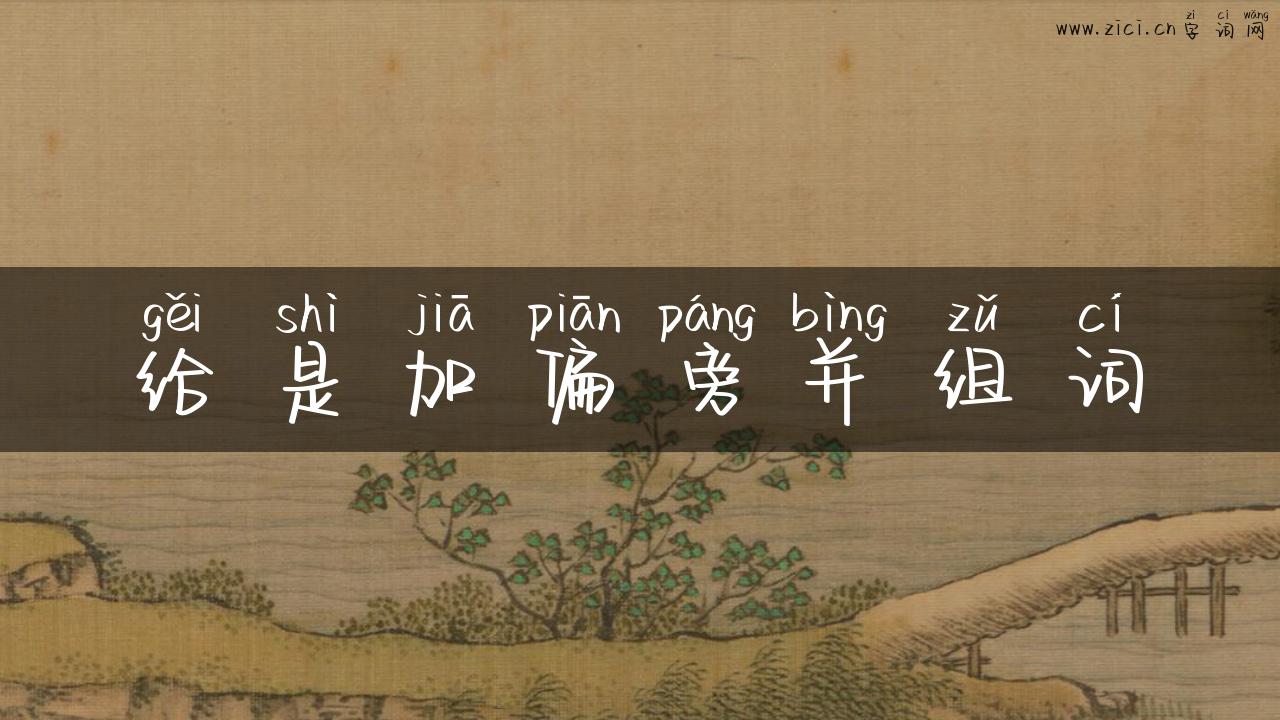 zì cí wǎng
www.zici.cn 字词网
gěi shì jiā piān páng bìng zǔ cí
给是加偏旁并组词